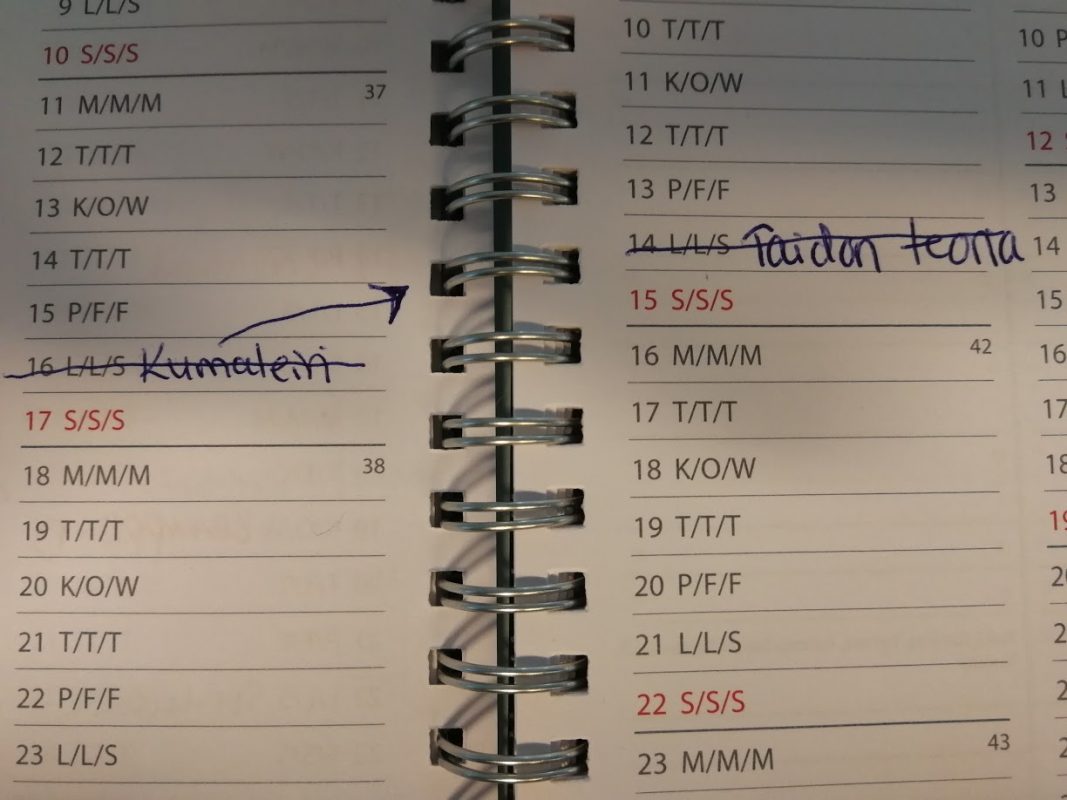 9 L/L/S
10 S/S/S
11 M/M/M 37
12 T/T/T
13 K/O/W
14 T/T/T
15 P/F/F
16 L/L/S Kumaleiri
17 S/S/S
18 M/M/M 38
19 T/T/T
20 K/O/W
21 T/T/T
22 P/F/F
23 L/L/S
10 T/T/T
11 K/O/W
12 T/T/T
13 P/F/F
14 L/L/S Taidon teoria
15 S/S/S
16 M/M/M 42
17 T/T/T
18 K/O/W
19 T/T/T
20 P/F/F
21 L/L/S
22 S/S/S
23 M/M/M 43
10 P
11 L
12
13
14
15
16
17